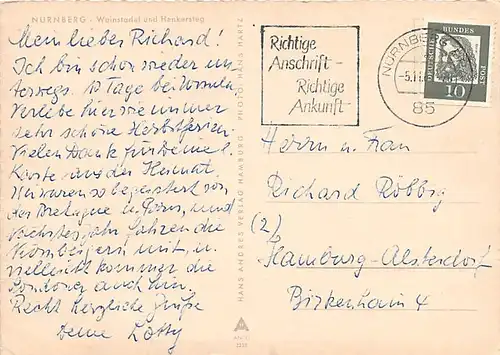 NÜRNBERG - Weinstadel und Henkersteg
Mein lieber Richard!
Ich bin schon wieder un-
terwegs. 10 Tage bei Ursula,
verlebe hier wie immer
sehr schöne Herbstferien.
Vielen Dank für Deine l.
Karte aus der Heimat.
Wir waren so begeistert von
der Bretagne u. Paris, und
nächstes Jahr fahren die
mit, u.
vielleicht kommen die
Londoner auch hin.
Recht herzliche Grüße
Deine Lotty
HANS ANDRES VERLAG HAMBURG PHOTO: HANS HARTZ
AN
Richtige
Anschrift -
Richtige
Ankunft -
NÜRNBERG
-5.11.
85
DEUTSCHE BUNDESPOST
10
Herrn u. Frau
Richard Röbbig
(2)
Hamburg-Alsterdorf
Birkenhain 4